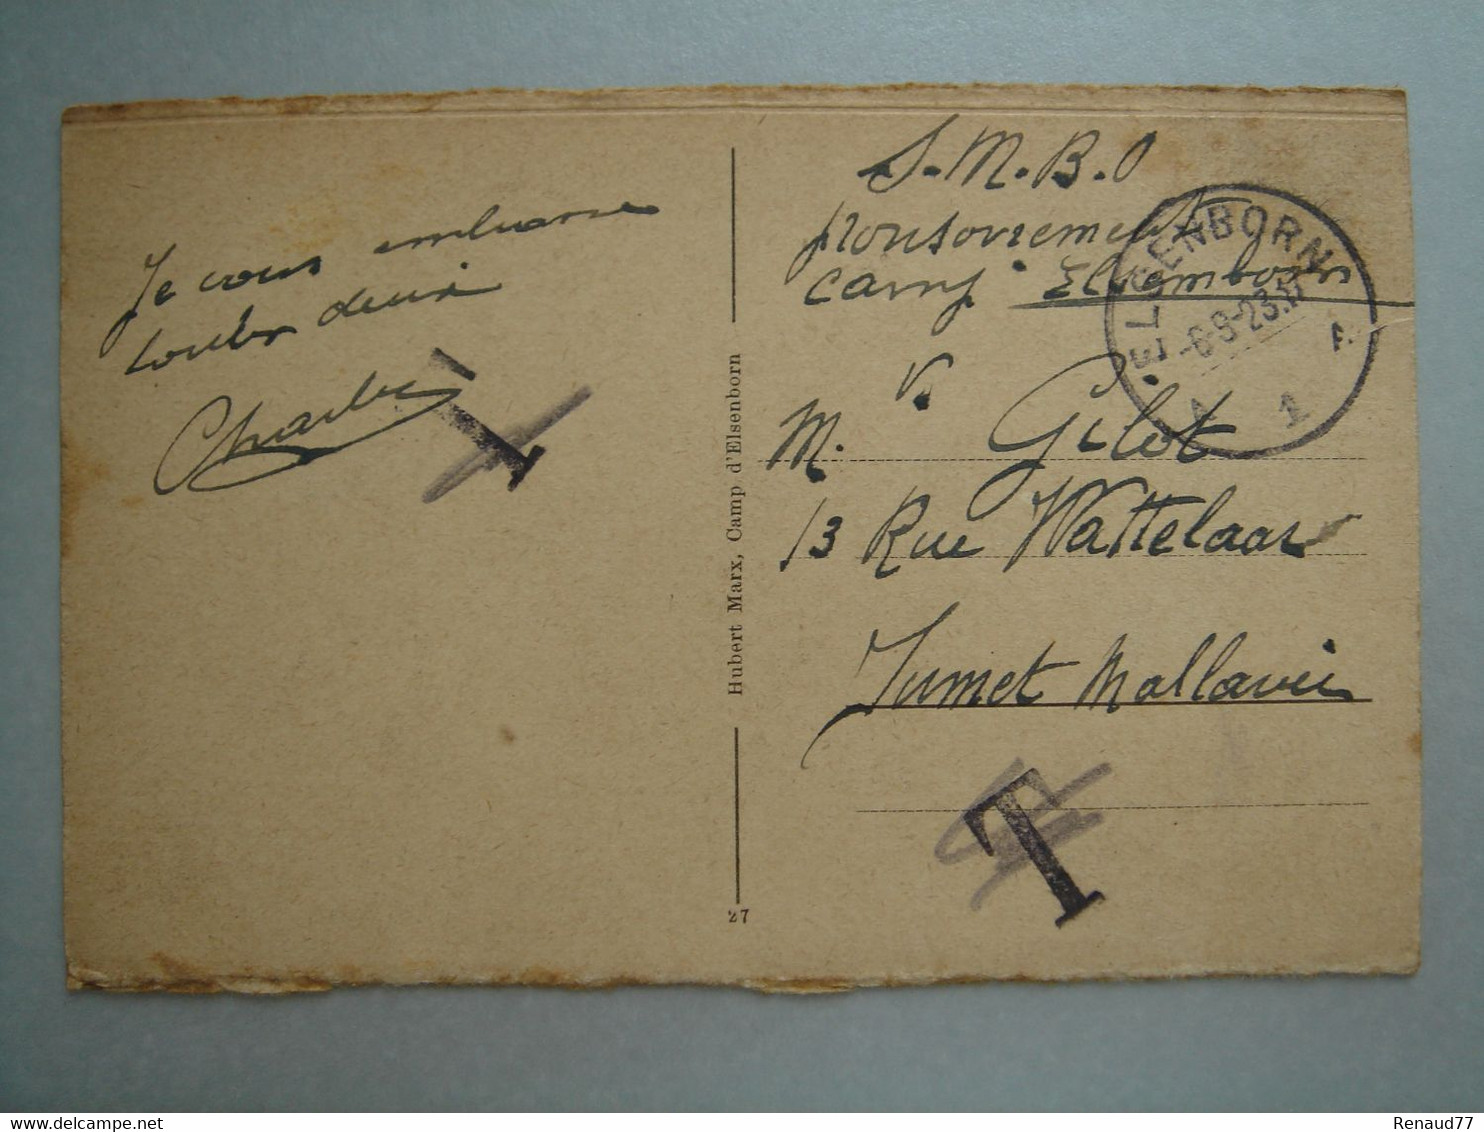 Je vous embrasse
toutes deux
Charles
T
Hubert Marx, Camp d'Elsenborn
27
S.M.B.O
Camp Elsemborn
ELSENBORN
-6-8-23.17
A 1 A
M. Gilot
13 Rue Wattelaar
Jumet Mallavée
T
Renaud77
delcampe.net